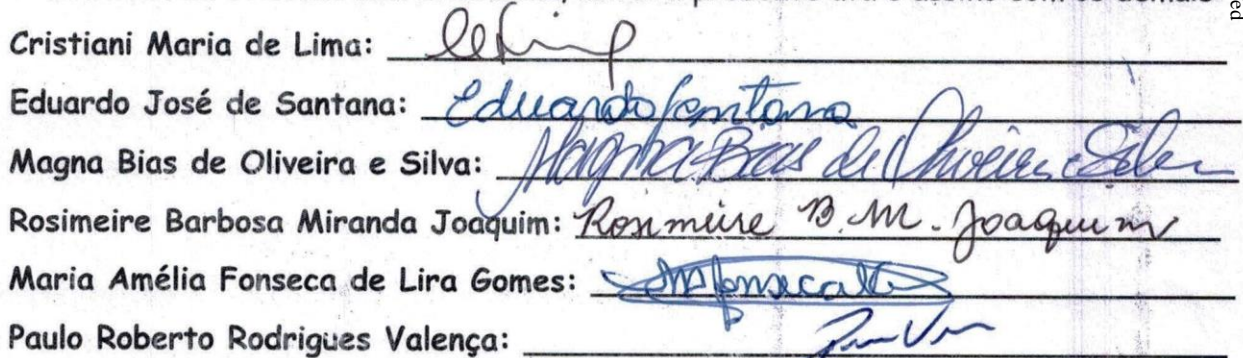 Cristiani Maria de Lima:
Eduardo José de Santana: Eduardo Santana
Magna Bias de Oliveira e Silva: Magna Bias de Oliveira e Silva
Rosimeire Barbosa Miranda Joaquim: Rosimeire B. M. Joaquim
Maria Amélia Fonseca de Lira Gomes:
Paulo Roberto Rodrigues Valença: